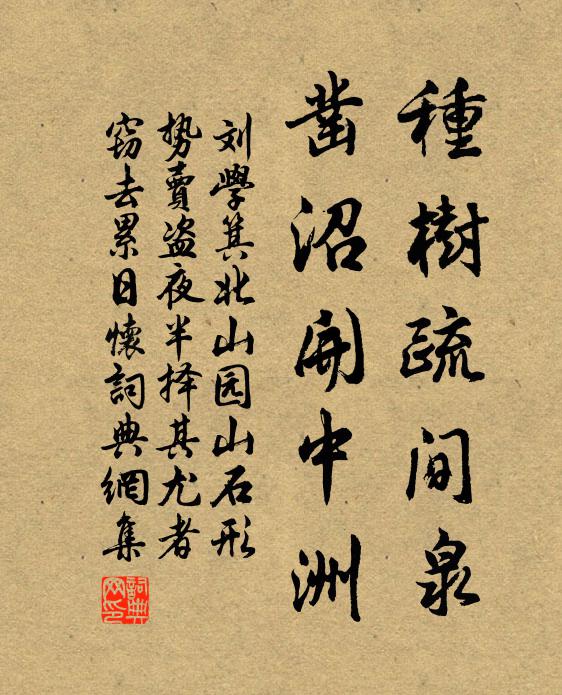 種樹疏間泉
凿沼開中洲
刘學箕北山园山石形
势賣盗夜半择其尤者
窃去累日懷詞典網集
詞典
网印